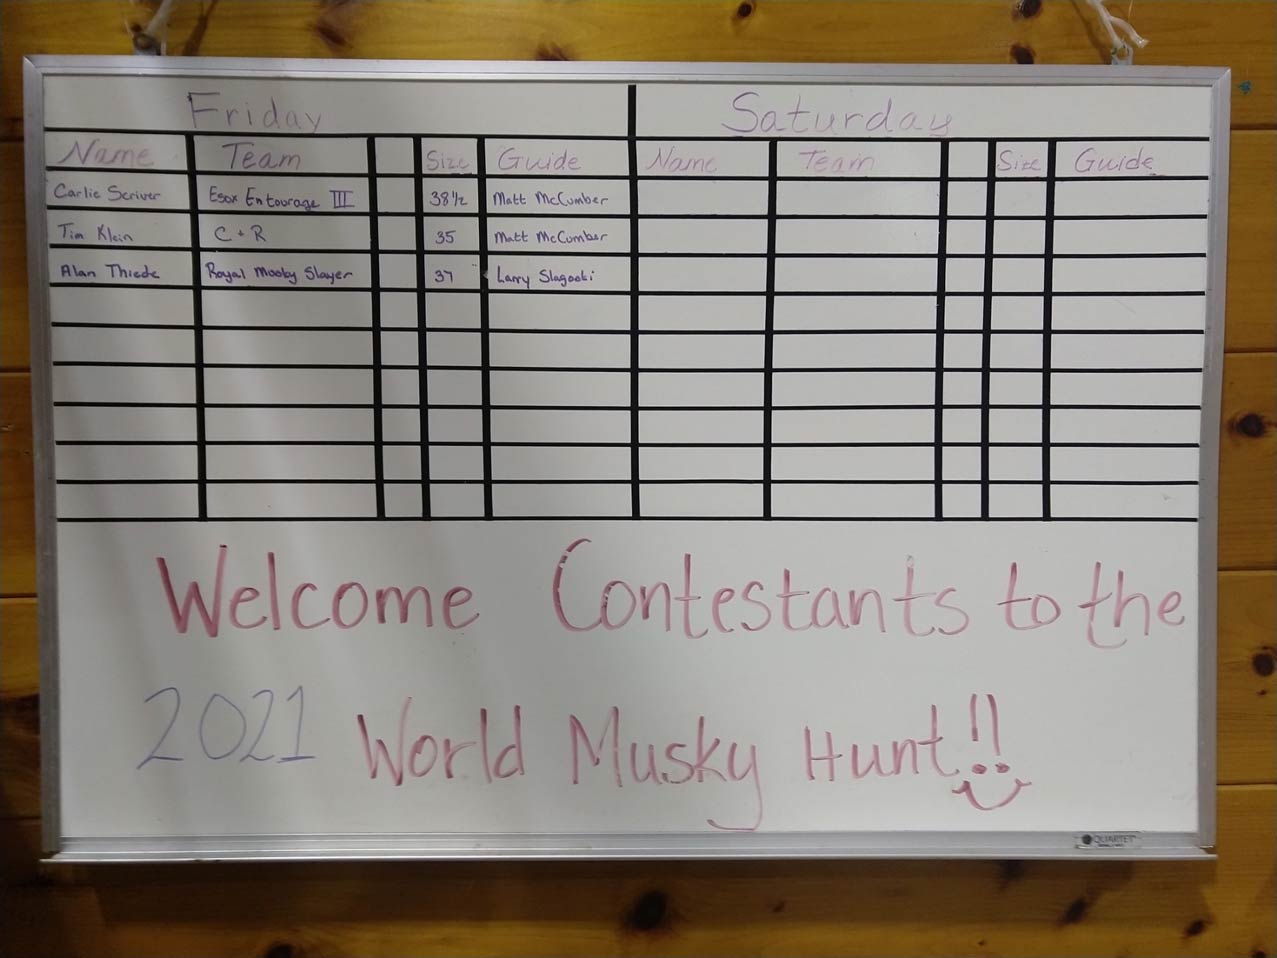 Friday Saturday
Name Team Size Guide Name Team Size Guide
Carlie Scriver Esox Entourage III 38 1/2 Matt McCumber
Tim Klein C + R 35 Matt McCumber
Alan Thiede Royal Mooby Slayer 37 Larry Slagoski
Welcome Contestants to the
2021 World Musky Hunt!!
QUARTET